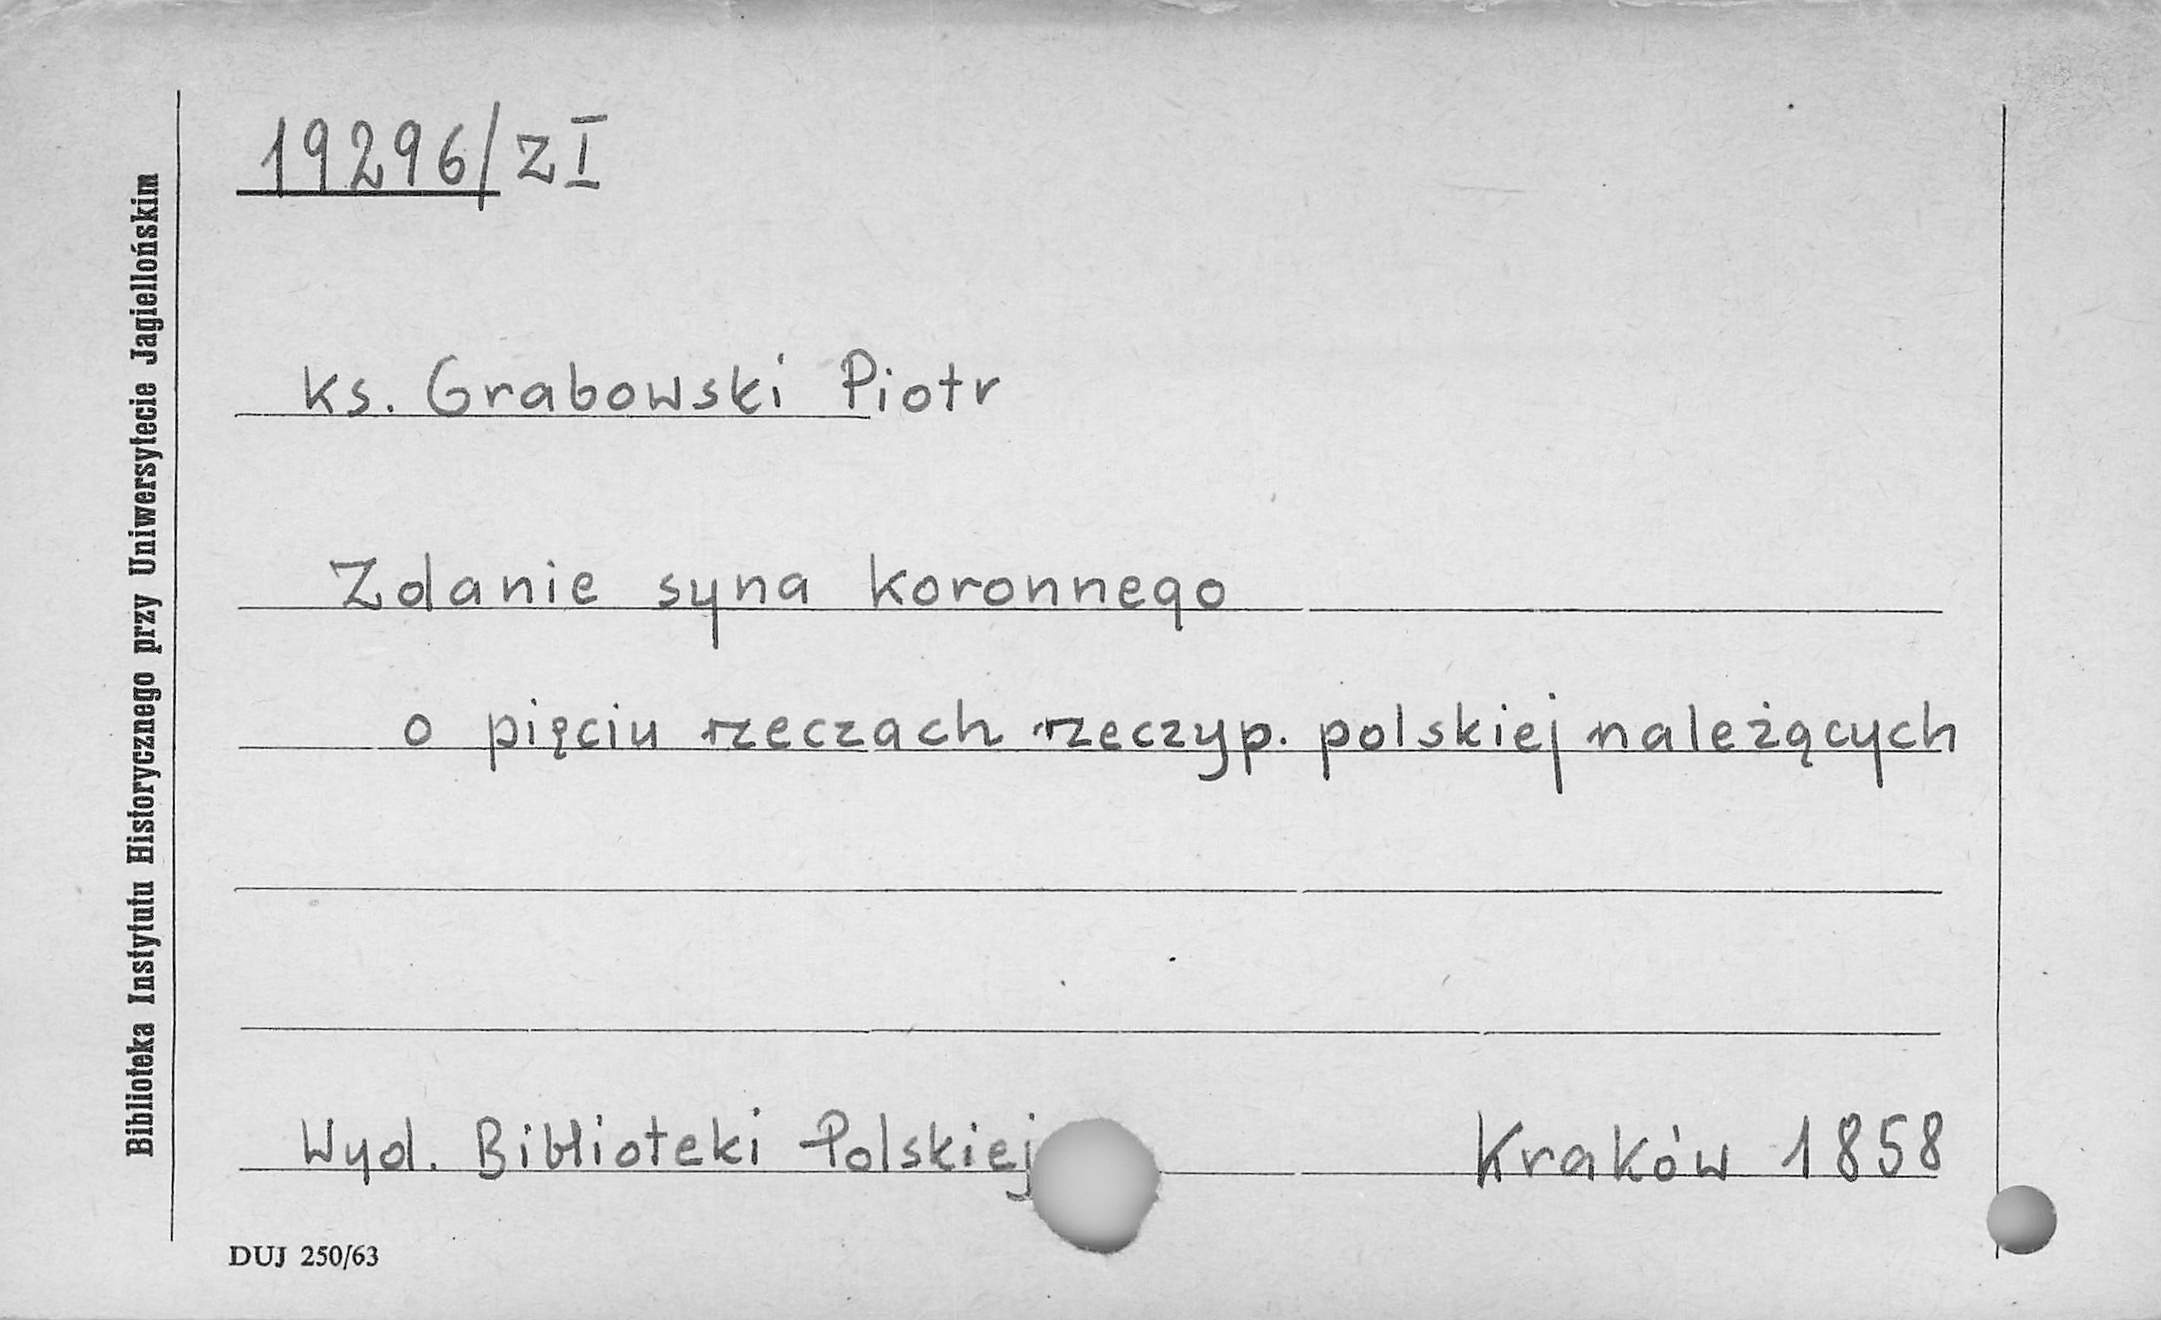 19296/ZI
ks. Grabowski Piotr
Zdanie syna koronnego
o pięciu rzeczach rzeczyp. polskiej należących
Wyd. Biblioteki Polskiej Kraków 1858
DUJ 250/63
Biblioteka Instytutu Historycznego przy Uniwersytecie Jagiellońskim